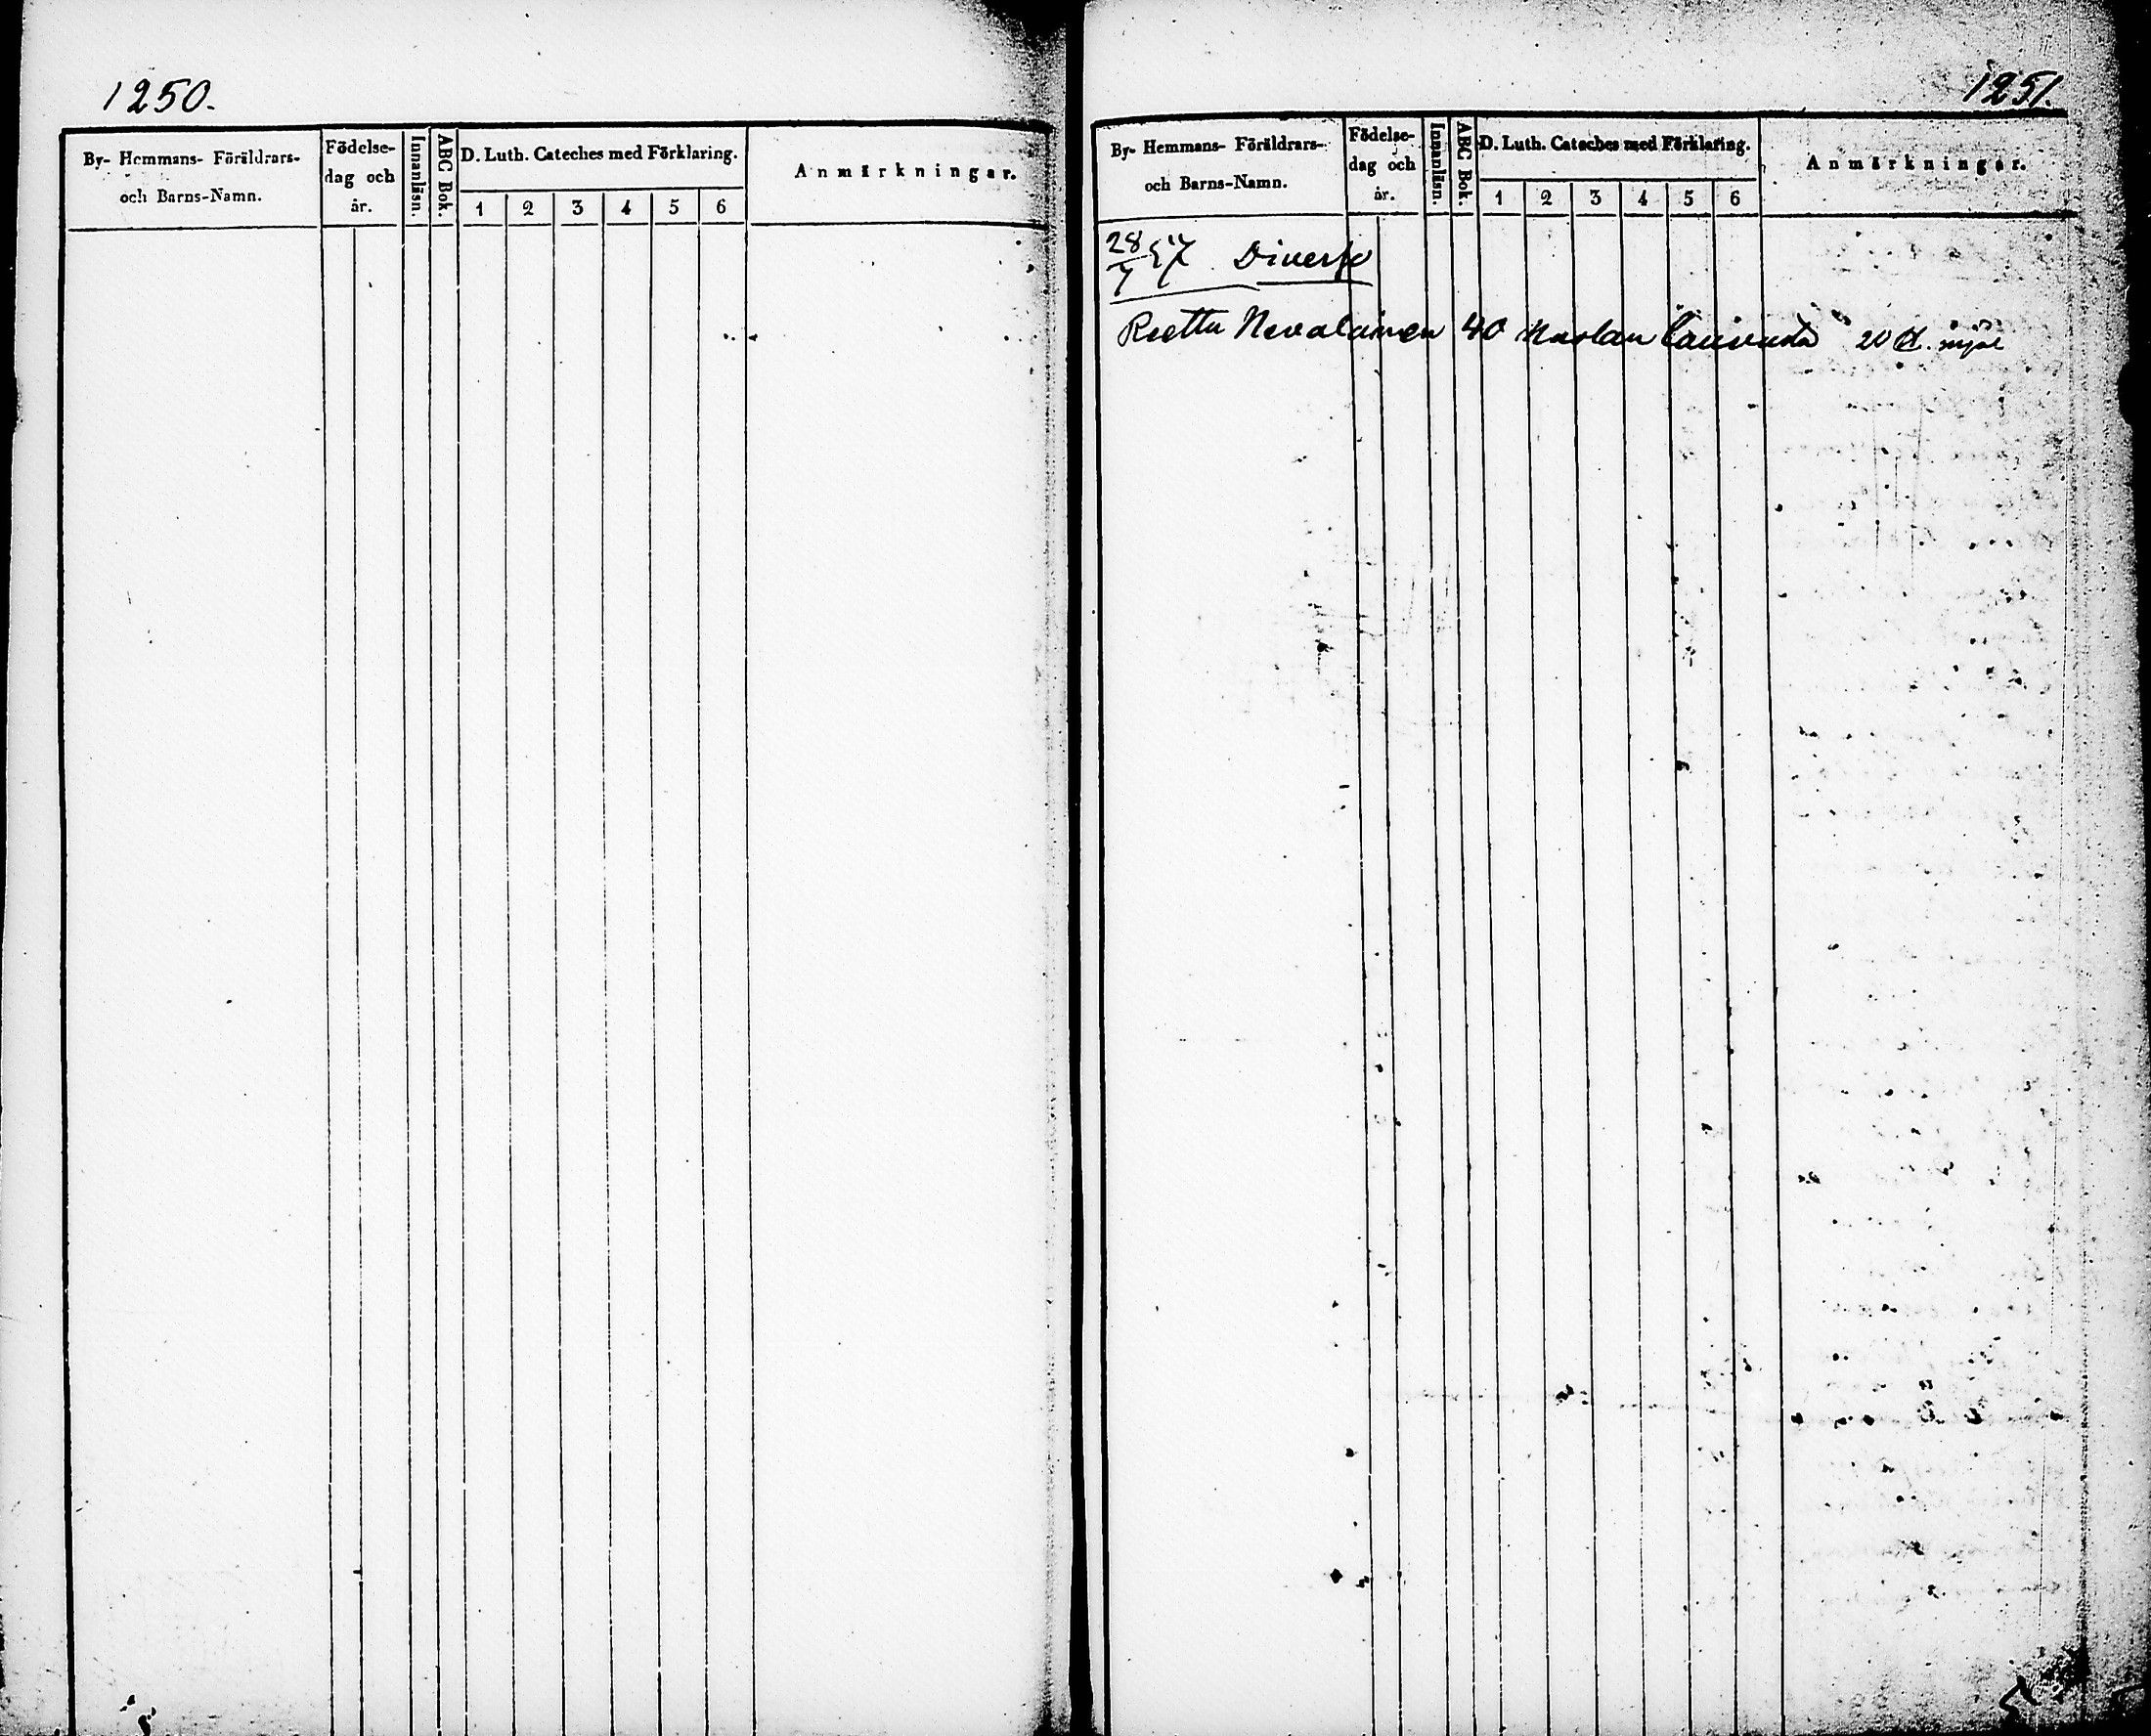 1250.
By- Hemmans- Föräldrars-
och Barns-Namn.
Födelse-
dag och
år.
Innanläsn.
ABC Bok.
D. Luth. Cateches med Förklaring.
1 2 3 4 5 6
Anmärkningar.
1251.
By- Hemmans- Föräldrars-
och Barns-Namn.
Födelse-
dag och
år.
Innanläsn.
ABC Bok.
D. Luth. Cateches med Förklaring.
1 2 3 4 5 6
Anmärkningar.
28/7 57 Diverse
Reetta Nevalainen 40 20 mjöl